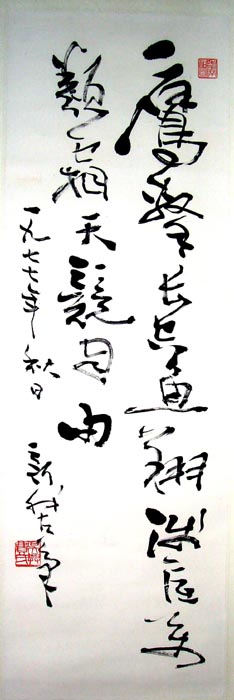 鷹擊長空魚翔淺底萬
類霜天競自由
一九七七年秋日 新我左筆